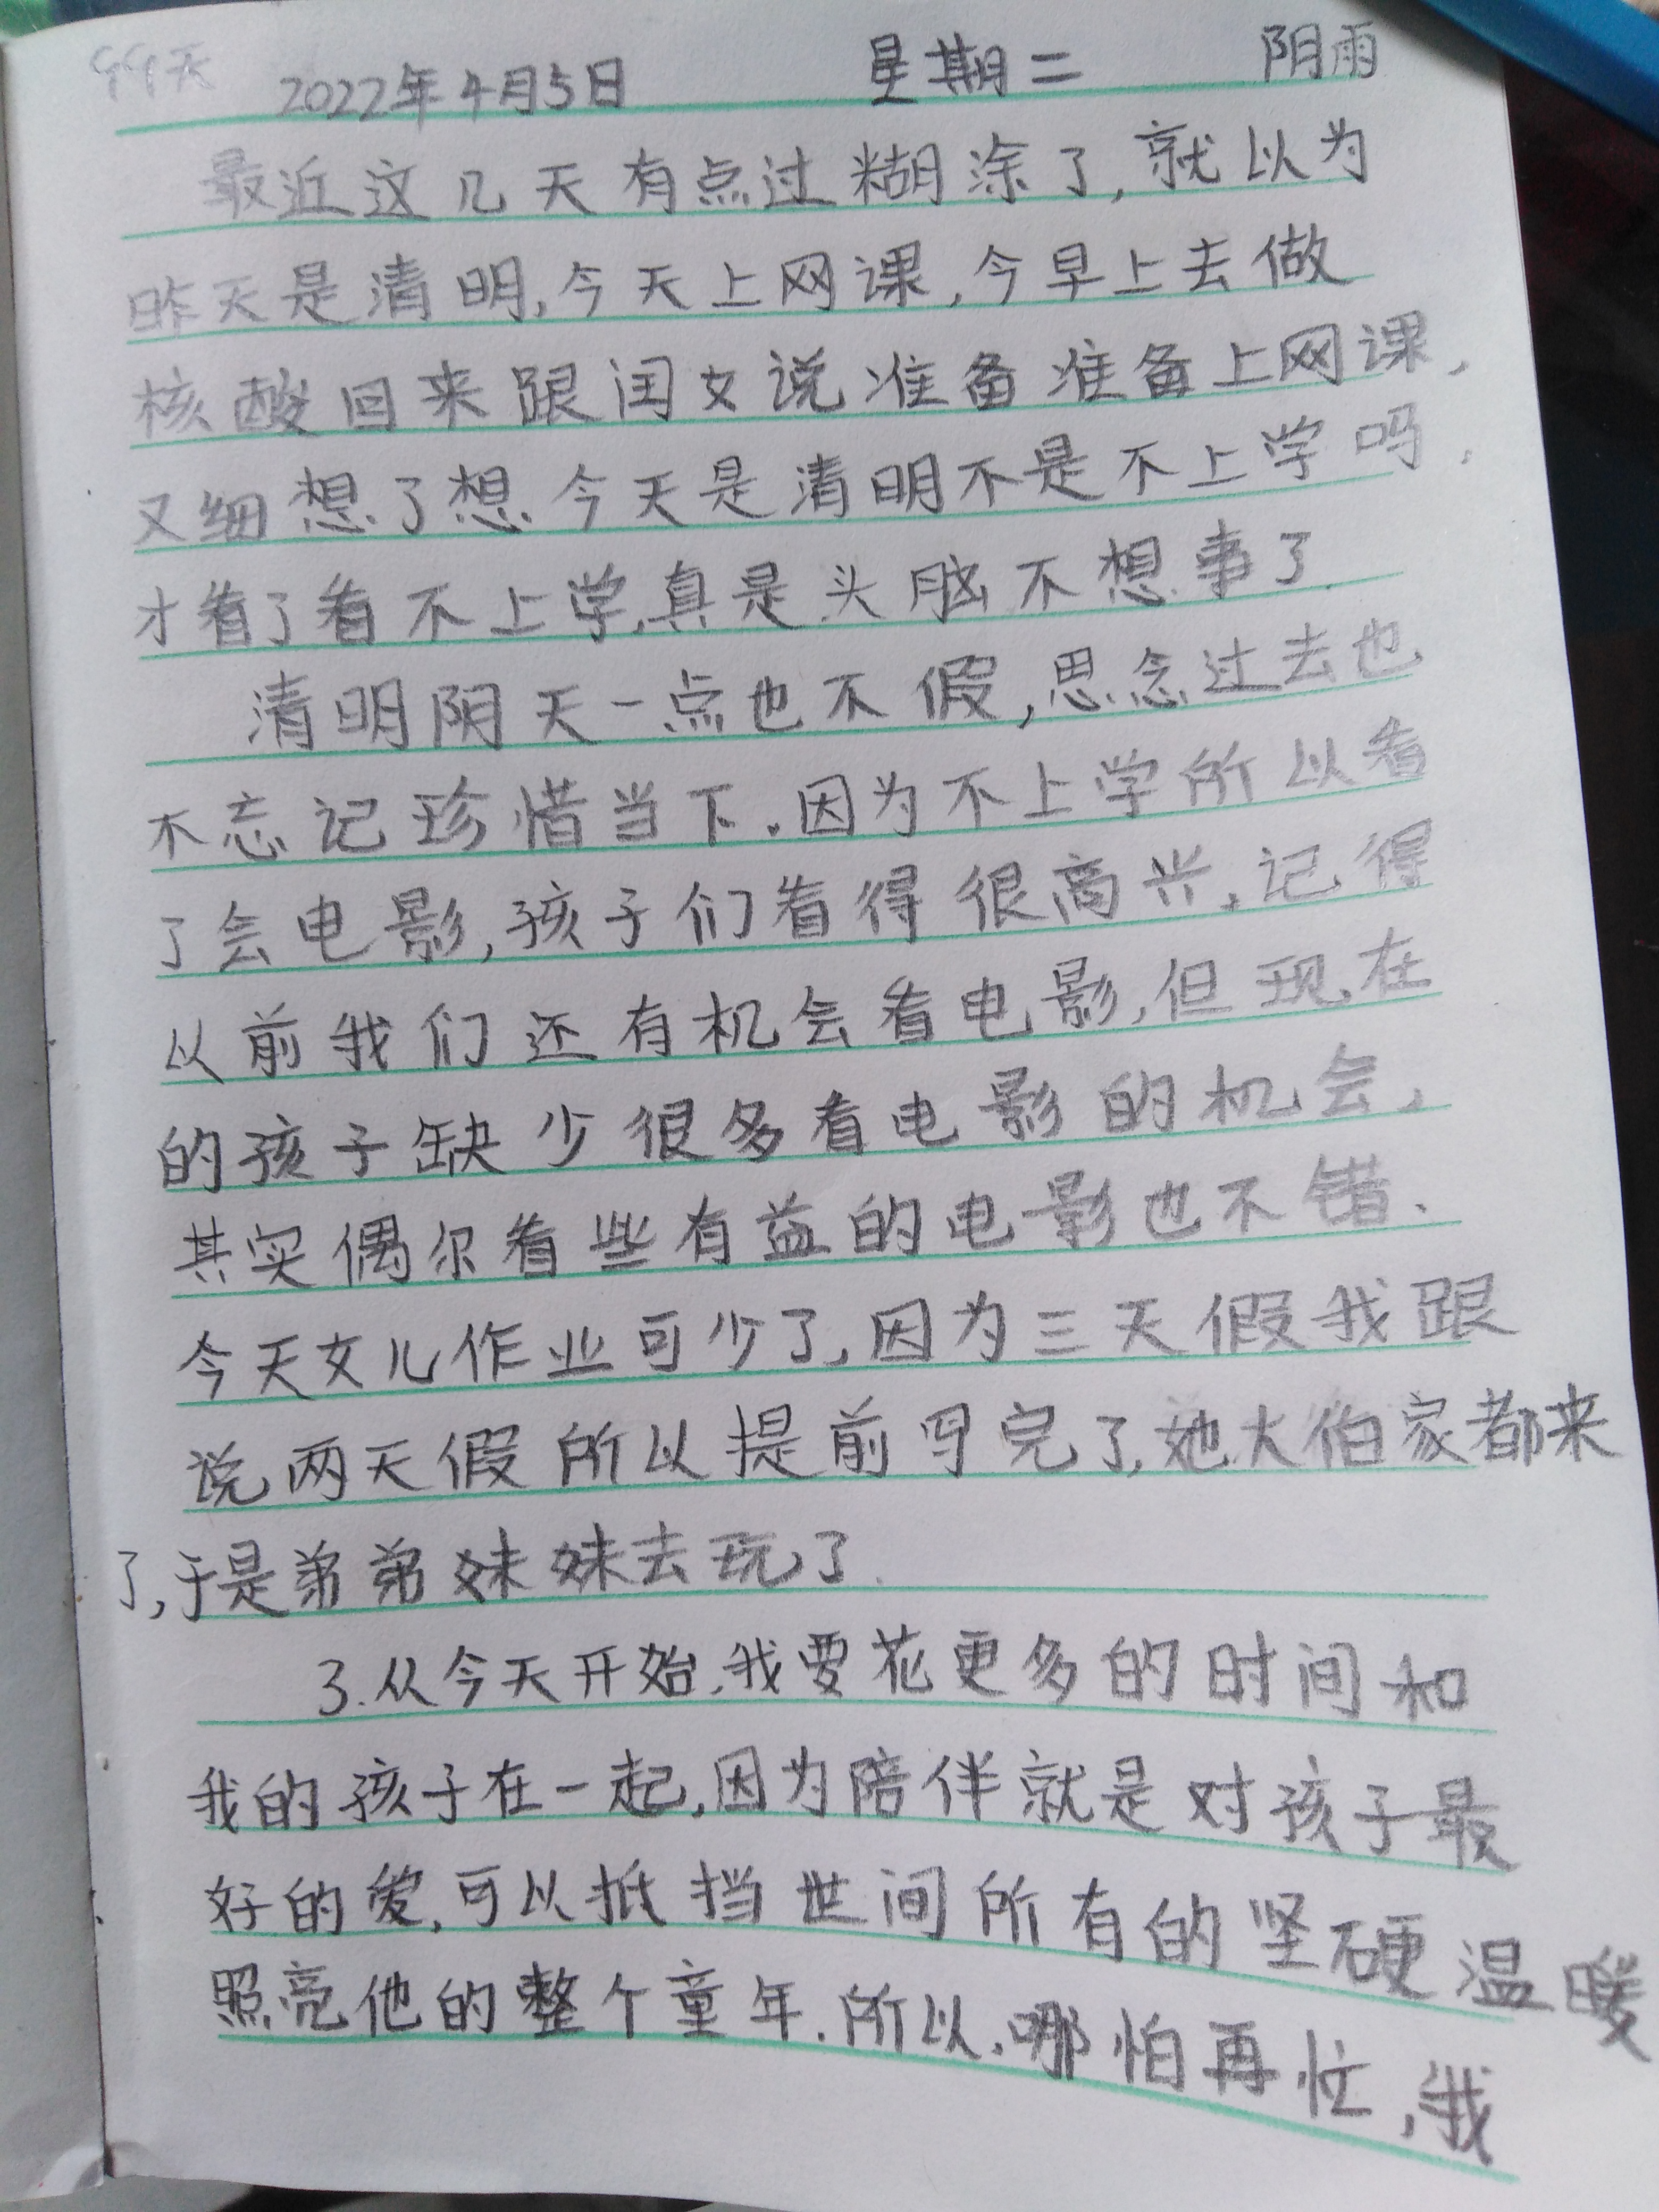 99天
2022年4月5日 星期二 阴雨
最近这几天有点过糊涂了,就以为
昨天是清明,今天上网课,今早上去做
核酸回来跟闺女说准备准备上网课,
又细想了想今天是清明不是不上学吗.
才看了看不上学,真是头脑不想事了.
清明阴天一点也不假,思念过去也
不忘记珍惜当下.因为不上学所以看
了会电影,孩子们看得很高兴.记得
以前我们还有机会看电影,但现在
的孩子缺少很多看电影的机会,
其实偶尔看些有益的电影也不错.
今天女儿作业可少了,因为三天假我跟
说两天假所以提前写完了,她大伯家都来
了,于是弟弟妹妹去玩了.
3.从今天开始,我要花更多的时间和
我的孩子在一起,因为陪伴就是对孩子最
好的爱,可以抵挡世间所有的坚硬温暖
照亮他的整个童年.所以,哪怕再忙,我